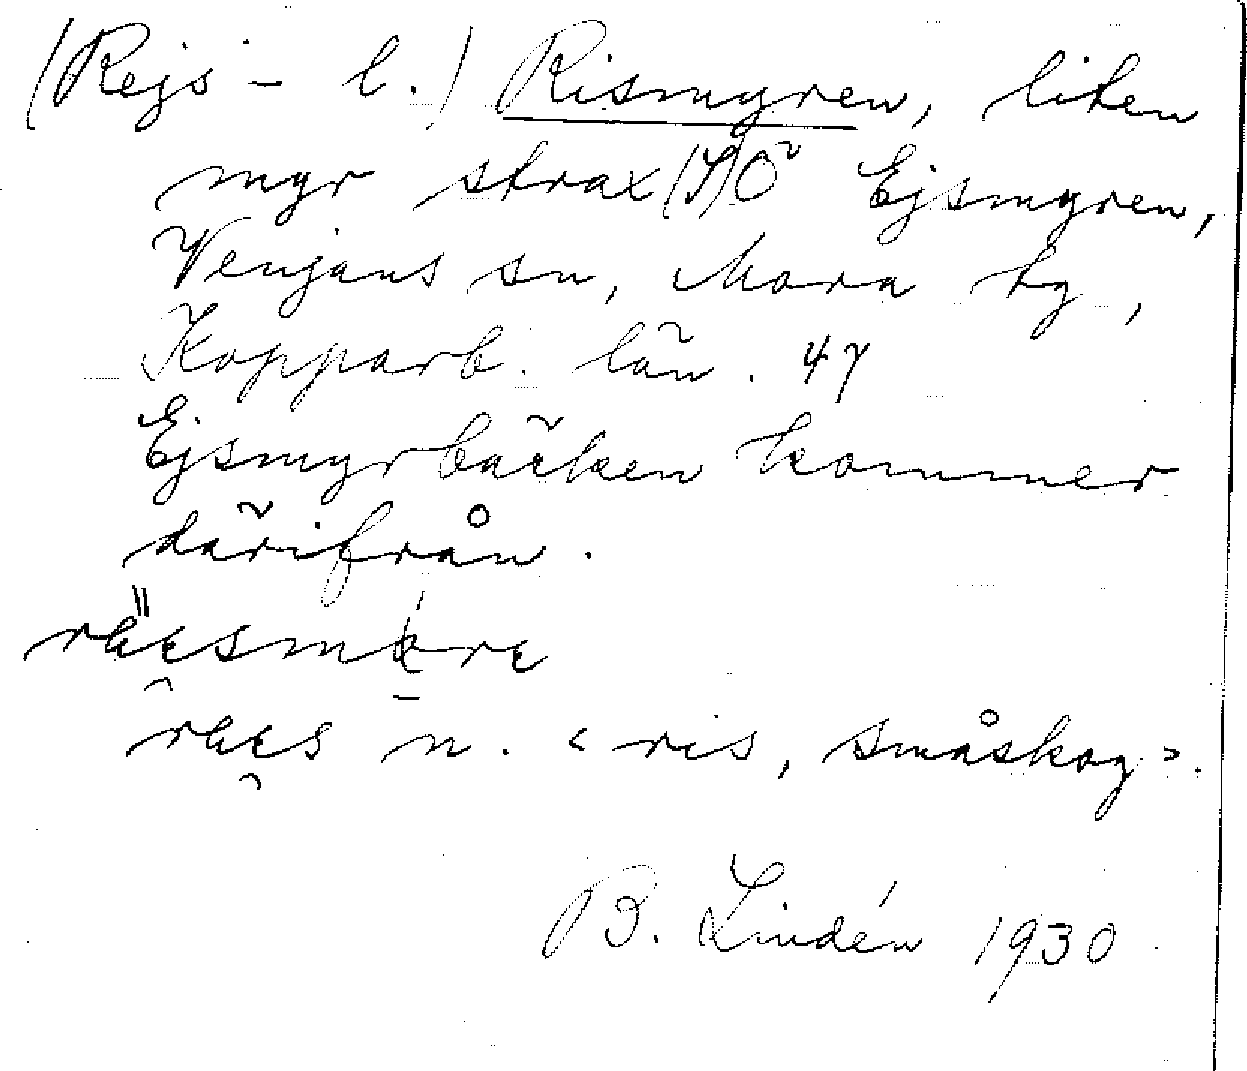 (Rejs- l.) Rismyren, liten
myr strax (S)Ö Ejsmyren,
Venjans sn, Mora tg,
Kopparb. län. 47
Ejsmyrbäcken kommer
därifrån.
n. < ris, småskog >.
B. Lindén 1930